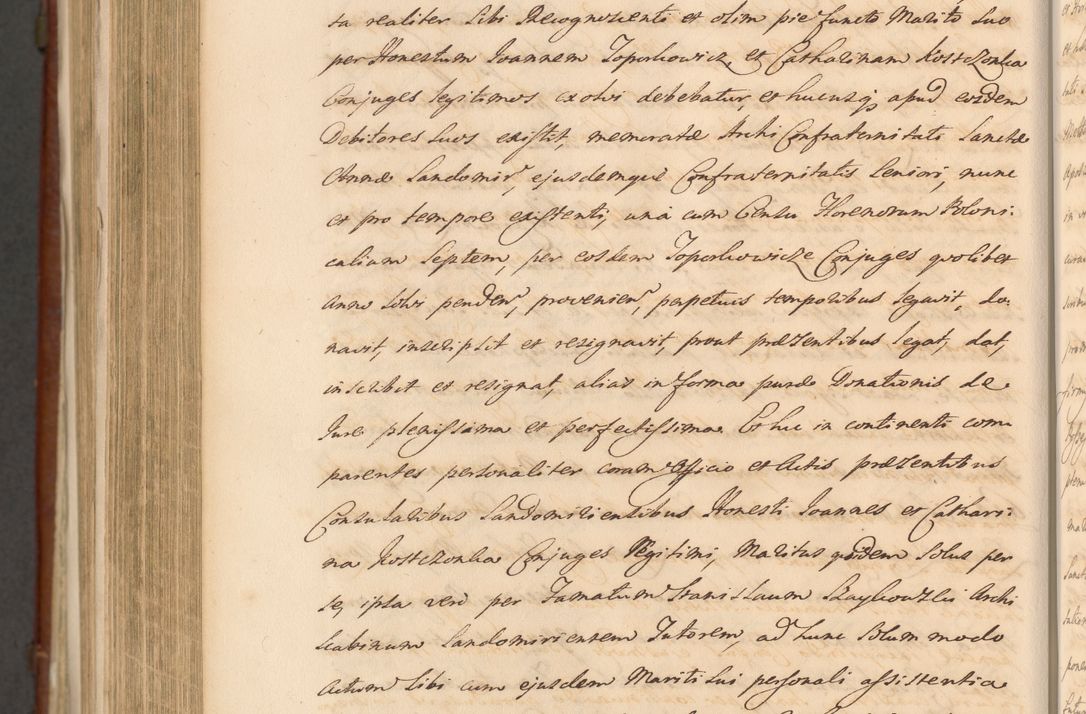 ta realiter Sibi Recognoscenti et olim pie functo Marito Suo
per Honestum Ioannem Toporkowicz et Catharinam Kostczonka
Conjuges legitimos exolvi debebatur, et hucusq; apud eosdem
Debitores Suos existit, memoratæ Archi Confraternitati Sanctæ
Annæ Sandomir, ejusdemque Confraternitatis Seniori, nunc
et pro tempore existenti, una cum Censu Florenorum Poloni:
calium Septem, per eosdem Toporkowicze Conjuges quolibet
Anno Solvi penden, provenien, perpetuis temporibus legavit, do:
navit, inscripsit et resignavit, prout præsentibus legat, dat,
inscribit et resignat, alias in forma puræ Donationis de
Iure plenissima et perfectissima. Et hic in continenti com
parentes personaliter coram Officio et Actis præsentibus
Consularibus Sandomiriensibus Honesti Ioannes et Cathari:
na Kostczonka Conjuges legitimi, Maritus quidem Solus per
se, ipsa vero per Famatum Stanislaum Archi
Scabinum Sandomiriensem Tutorem, ad hunc Solum modo
Actum Sibi cum ejusdem Mariti Sui personali assistentia